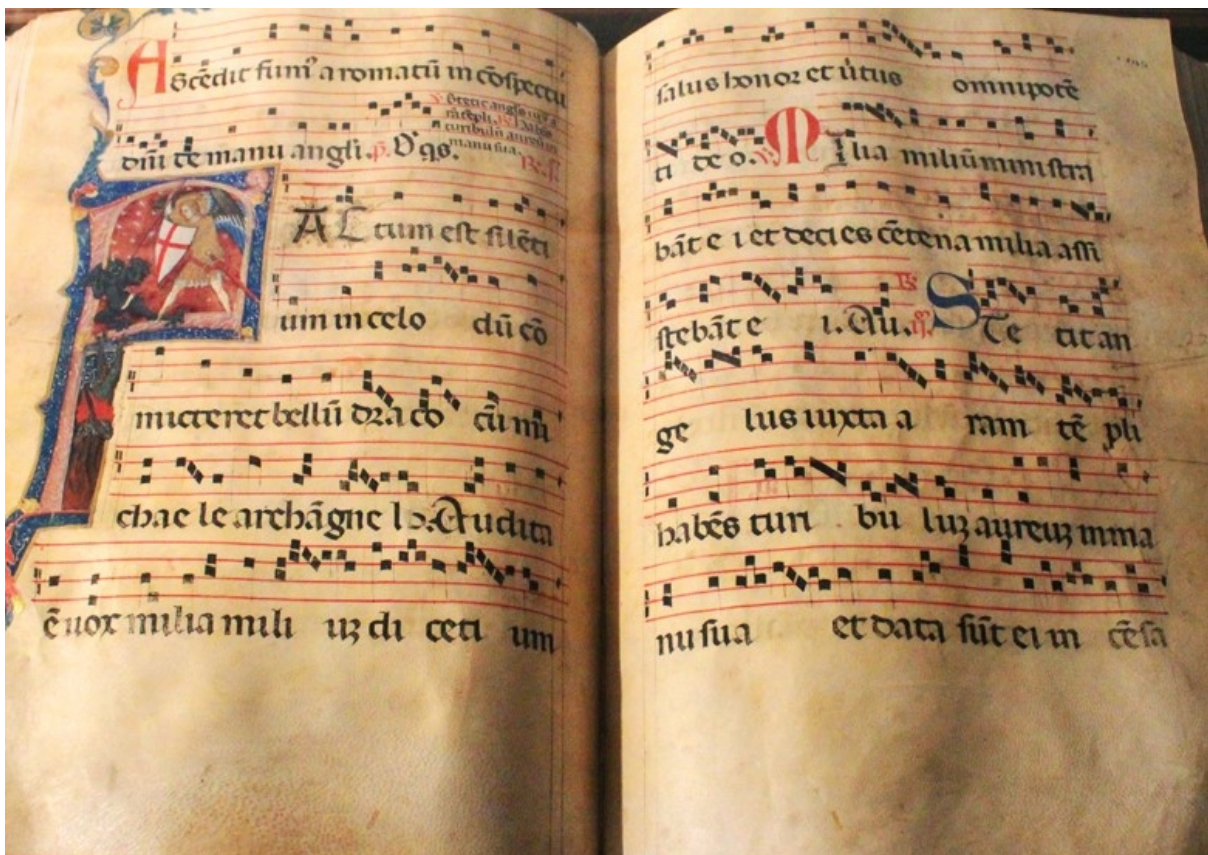 Ascēdit fum᾽ aromatū in cōspectu
dn̄i de manu angl̄i. p̄. D᾽ q̄s.
Stetit angl̄s iuxta
turibulū aureū in
manu sua.
FAL ctum est silēti
um in celo dū cō
mitteret bellū draco cū mi
chae le archāgne lo. Audita
ē uox milia mili uꝫ di ceti um
salus honor et uirtus omnipotē
ti de o. ℣. Milia miliū ministra
bāt e i et decies cētena milia assi
stebāt e i. Au. Ste tit an
ge lus iuxta a ram tē pli
habēs turi bu luꝫ aureuꝫ in ma
nu sua et data sūt ei in cēsa